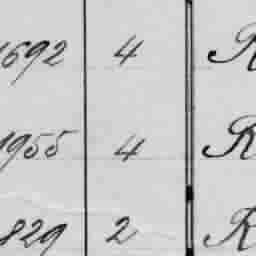 1692 4 R
1955 4 R
829 2 R